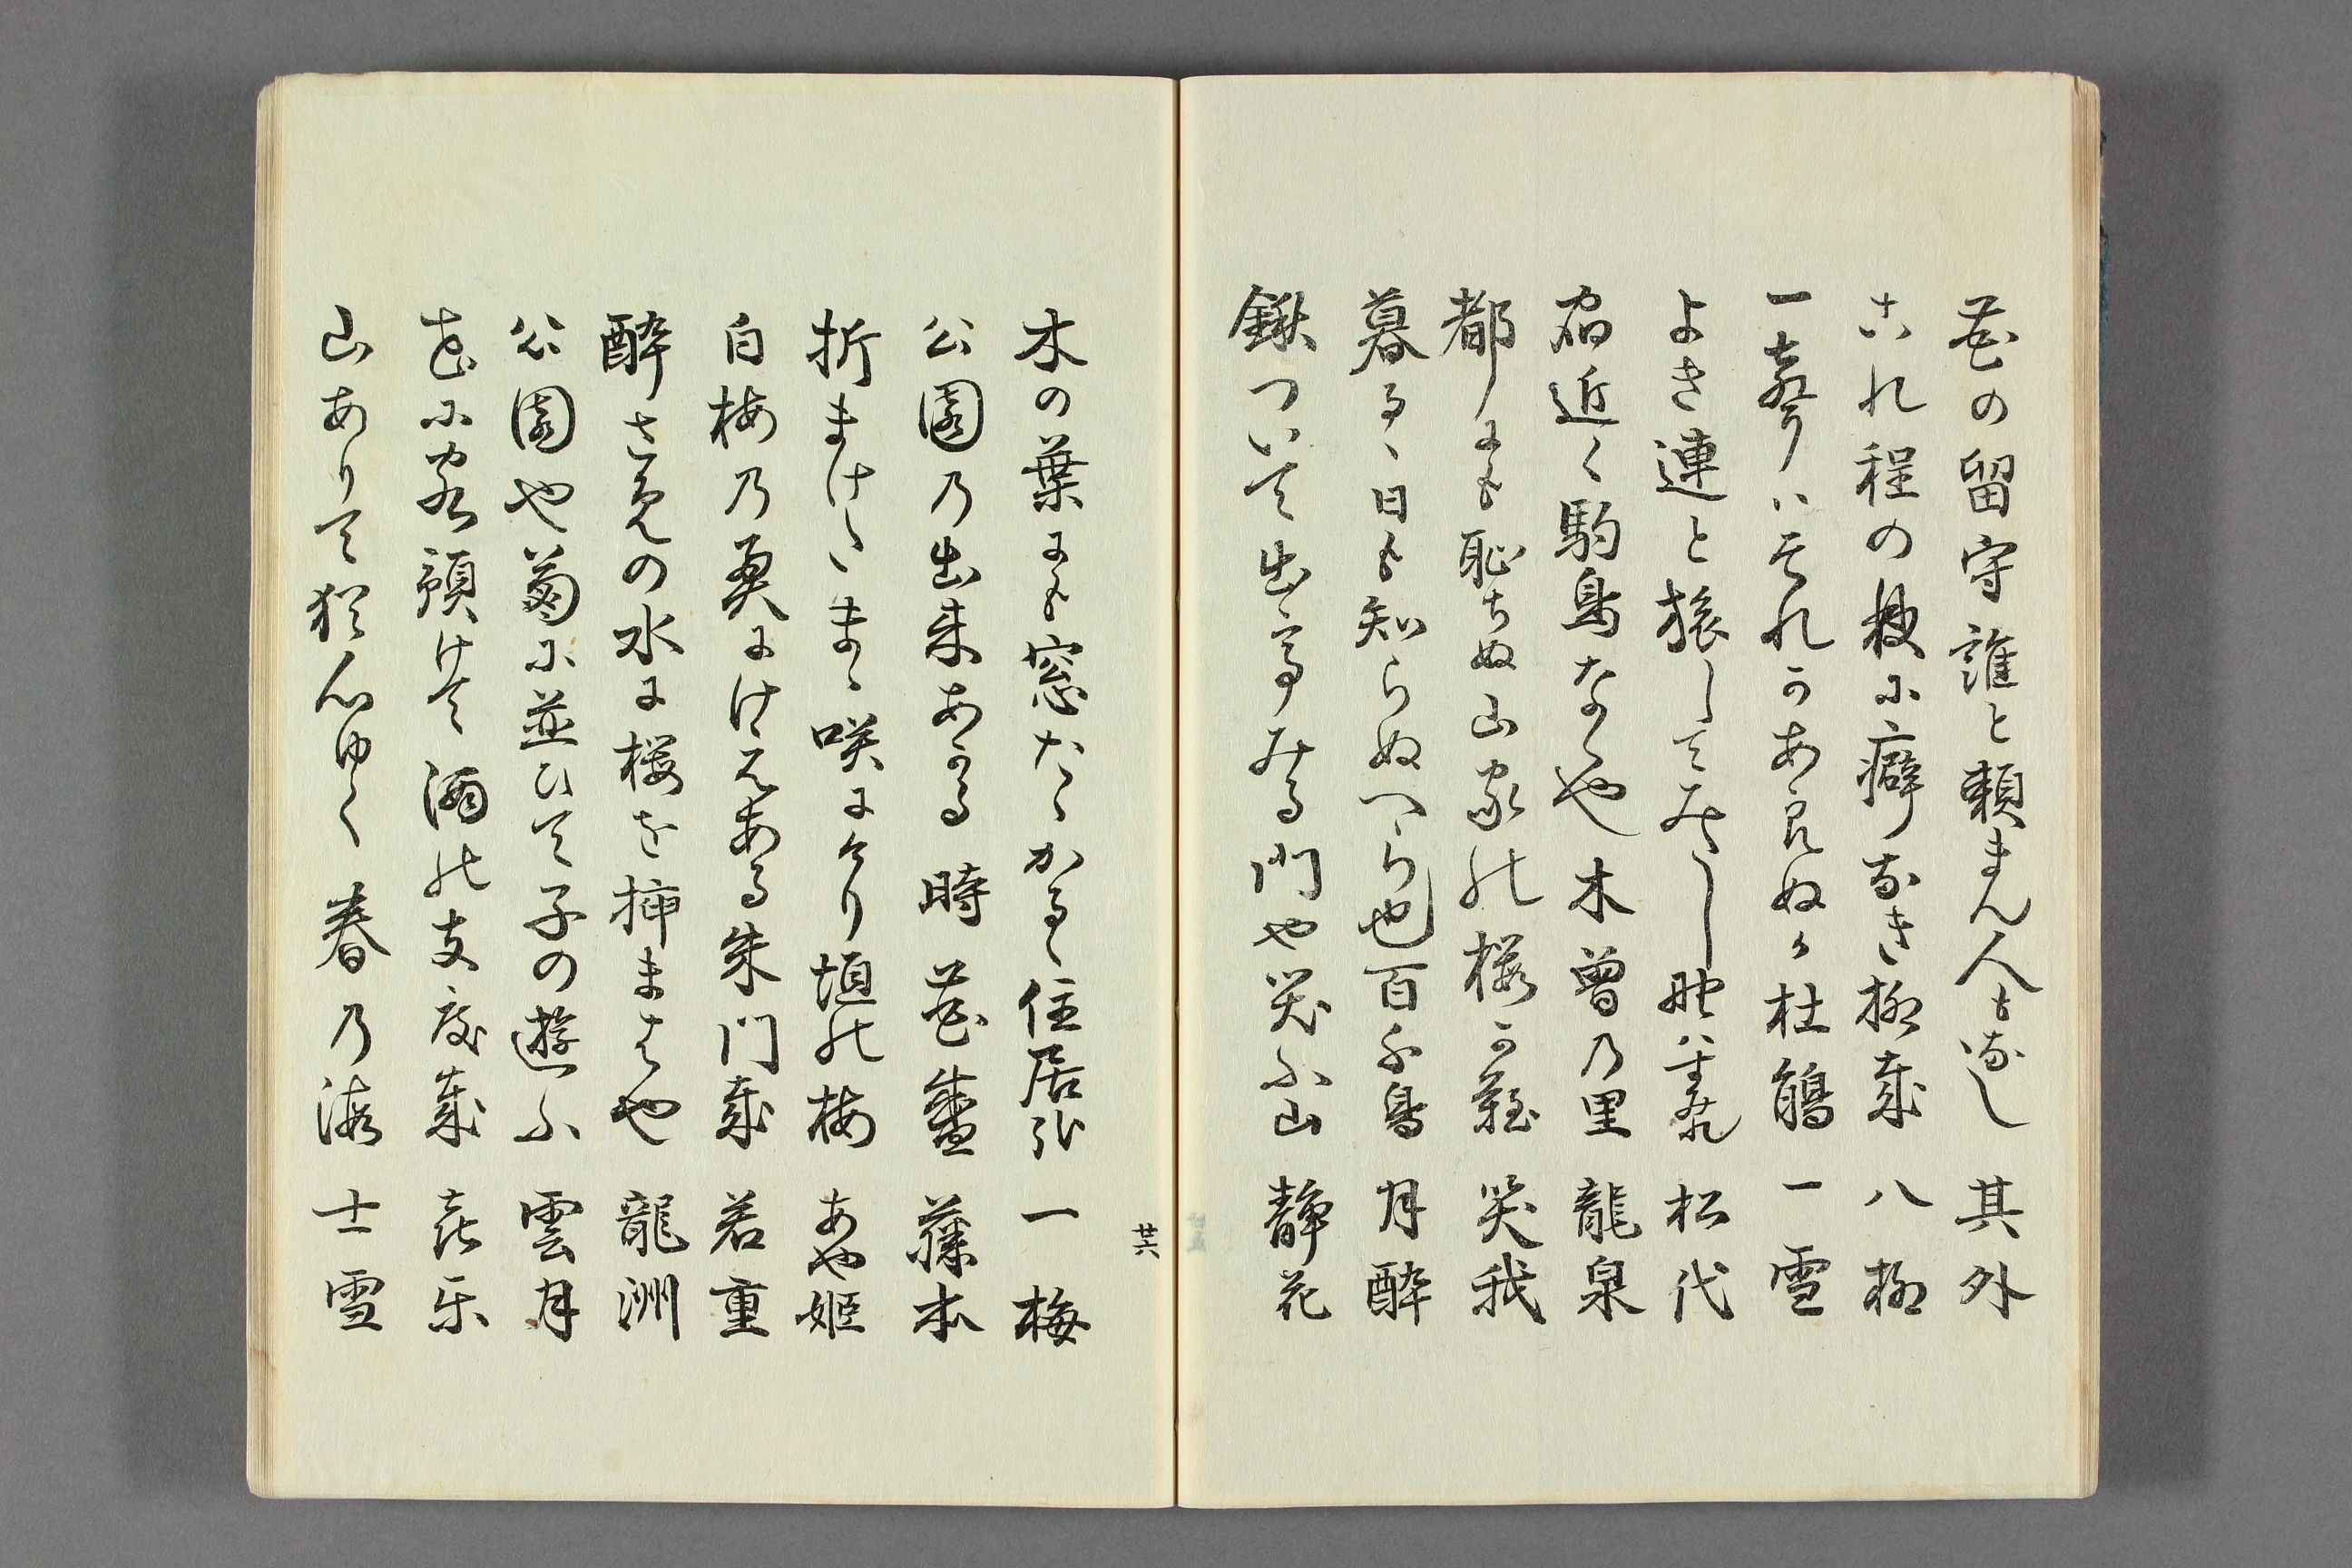 花の留守誰と頼まん人もなし 其外
これ程の枝に癖なき柳哉 八柳
一声はそれかあらぬか杜鵑 一雪
よき連と旅してみたし野は霞 松代
宿近く駒鳥なくや木曽乃里 龍泉
都にも恥ちぬ山家の桜かな 笑我
暮るゝ日も知らぬつらや百千鳥 月酔
鍬ついて出てみる門や笑ふ山 静花
廿六
木の葉にも窓たゝかるゝ住居哉 一梅
公園乃出来あかる時花盛 藤本
折まけたまゝ咲にけり垣の梅 あや姫
白梅乃奥にはえある朱門哉 若重
酔さめの水に桜を挿ませや 龍洲
公園や菊に並ひて子の遊ふ 雲月
花に客預けて酒の支度哉 喜楽
山ありて猶心ゆく春乃海 士雪